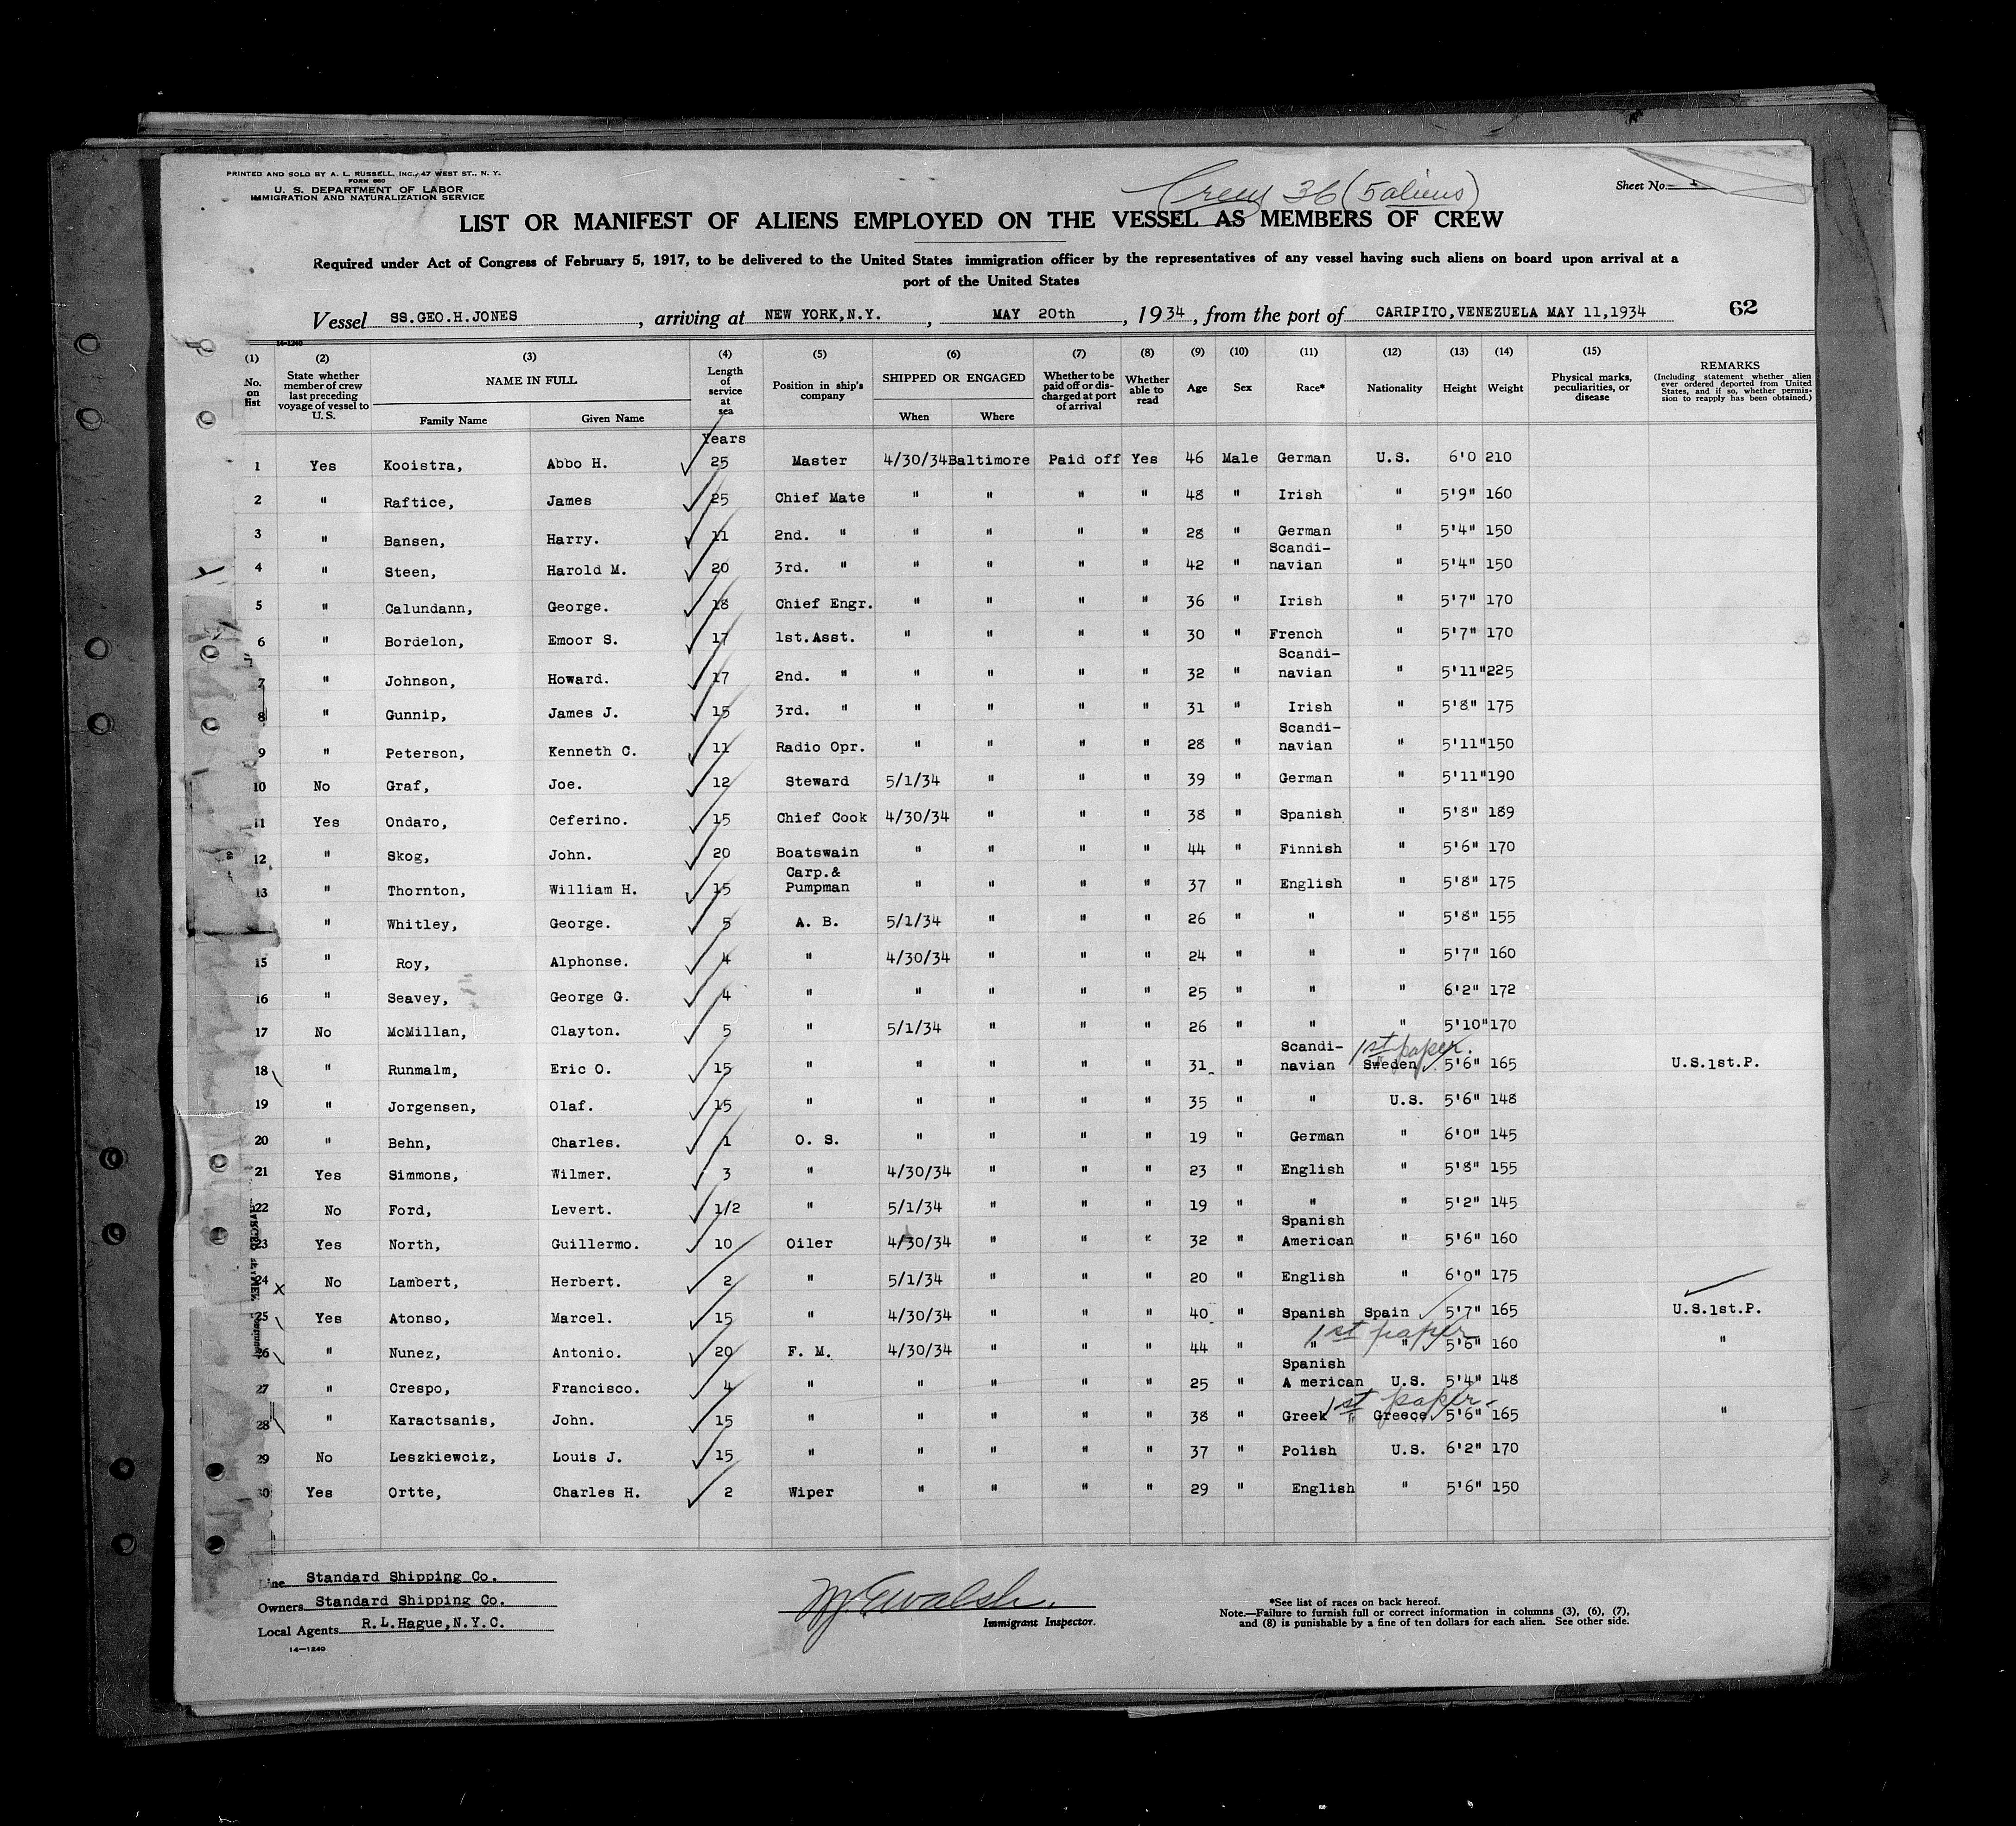 PRINTED AND SOLD BY A. L. RUSSELL, INC., 47 WEST ST., N. Y.
FORM 680
U. S. DEPARTMENT OF LABOR
IMMIGRATION AND NATURALIZATION SERVICE
Crew 36 (5 aliens)
Sheet No.
LIST OR MANIFEST OF ALIENS EMPLOYED ON THE VESSEL AS MEMBERS OF CREW
Required under Act of Congress of February 5, 1917, to be delivered to the United States immigration officer by the representatives of any vessel having such aliens on board upon arrival at a
port of the United States
Vessel SS.GEO.H.JONES, arriving at NEW YORK,N.Y., MAY 20th, 1934, from the port of CARIPITO,VENEZUELA MAY 11,1934 62
14-1240
(1) No. on list (2) State whether member of crew last preceding voyage of vessel to U. S. (3) NAME IN FULL Family Name Given Name (4) Length of service at sea (5) Position in ship's company (6) SHIPPED OR ENGAGED When Where (7) Whether to be paid off or discharged at port of arrival (8) Whether able to read (9) Age (10) Sex (11) Race* (12) Nationality (13) Height (14) Weight (15) Physical marks, peculiarities, or disease REMARKS (Including statement whether alien ever ordered deported from United States, and if so, whether permission to reapply has been obtained.)
Years
1 Yes Kooistra, Abbo H. 25 Master 4/30/34 Baltimore Paid off Yes 46 Male German U.S. 6'0 210
2 " Raftice, James 25 Chief Mate " " " " 48 " Irish " 5'9" 160
3 " Bansen, Harry. 11 2nd. " " " " " 28 " German " 5'4" 150
4 " Steen, Harold M. 20 3rd. " " " " " 42 " Scandi-navian " 5'4" 150
5 " Calundann, George. 18 Chief Engr. " " " " 36 " Irish " 5'7" 170
6 " Bordelon, Emoor S. 17 1st.Asst. " " " " 30 " French " 5'7" 170
7 " Johnson, Howard. 17 2nd. " " " " " 32 " Scandi-navian " 5'11" 225
8 " Gunnip, James J. 15 3rd. " " " " " 31 " Irish " 5'8" 175
9 " Peterson, Kenneth C. 11 Radio Opr. " " " " 28 " Scandi-navian " 5'11" 150
10 No Graf, Joe. 12 Steward 5/1/34 " " " 39 " German " 5'11" 190
11 Yes Ondaro, Ceferino. 15 Chief Cook 4/30/34 " " " 38 " Spanish " 5'8" 189
12 " Skog, John. 20 Boatswain " " " " 44 " Finnish " 5'6" 170
13 " Thornton, William H. 15 Carp.& Pumpman " " " " 37 " English " 5'8" 175
" Whitley, George. 5 A. B. 5/1/34 " " " 26 " " " 5'8" 155
15 " Roy, Alphonse. 4 " 4/30/34 " " " 24 " " " 5'7" 160
16 " Seavey, George G. 4 " " " " " 25 " " " 6'2" 172
17 No McMillan, Clayton. 5 " 5/1/34 " " " 26 " " " 5'10" 170
1st paper.
18 " Runmalm, Eric O. 15 " " " " " 31 " Scandi-navian Sweden 5'6" 165 U.S.1st.P.
19 " Jorgensen, Olaf. 15 " " " " " 35 " " U.S. 5'6" 148
20 " Behn, Charles. 1 O. S. " " " " 19 " German " 6'0" 145
21 Yes Simmons, Wilmer. 3 " 4/30/34 " " " 23 " English " 5'8" 155
22 No Ford, Levert. 1/2 " 5/1/34 " " " 19 " " " 5'2" 145
23 Yes North, Guillermo. 10 Oiler 4/30/34 " " " 32 " Spanish American " 5'6" 160
24 x No Lambert, Herbert. 2 " 5/1/34 " " " 20 " English " 6'0" 175
25 Yes Atonso, Marcel. 15 " 4/30/34 " " " 40 " Spanish Spain 5'7" 165 U.S.1st.P.
1st paper
26 " Nunez, Antonio. 20 F. M. 4/30/34 " " " 44 " " " 5'6" 160 "
27 " Crespo, Francisco. 4 " " " " " 25 " Spanish A merican U.S. 5'4" 148
1st paper
28 " Karactsanis, John. 15 " " " " " 38 " Greek Greece 5'6" 165 "
29 No Leszkiewciz, Louis J. 15 " " " " " 37 " Polish U.S. 6'2" 170
30 Yes Ortte, Charles H. 2 Wiper " " " " 29 " English " 5'6" 150
Line Standard Shipping Co.
Owners Standard Shipping Co.
Local Agents R.L.Hague,N.Y.C.
14-1240
Immigrant Inspector.
*See list of races on back hereof.
Note.—Failure to furnish full or correct information in columns (3), (6), (7),
and (8) is punishable by a fine of ten dollars for each alien. See other side.